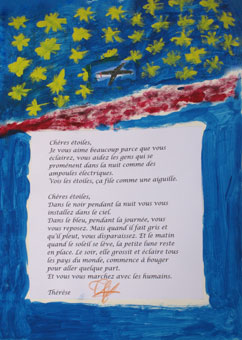 Chères étoiles,
Je vous aime beaucoup parce que vous
éclairez, vous aidez les gens qui se
promènent dans la nuit comme des
ampoules électriques.
Vois les étoiles, ça file comme une aiguille.
Chères étoiles,
Dans le noir pendant la nuit vous vous
installez dans le ciel.
Dans le bleu, pendant la journée, vous
vous reposez. Mais quand il fait gris et
qu'il pleut, vous disparaissez. Et le matin
quand le soleil se lève, la petite lune reste
en place. Le soir, elle grossit et éclaire tous
les pays du monde, commence à bouger
pour aller quelque part.
Et vous vous marchez avec les humains.
Thérèse